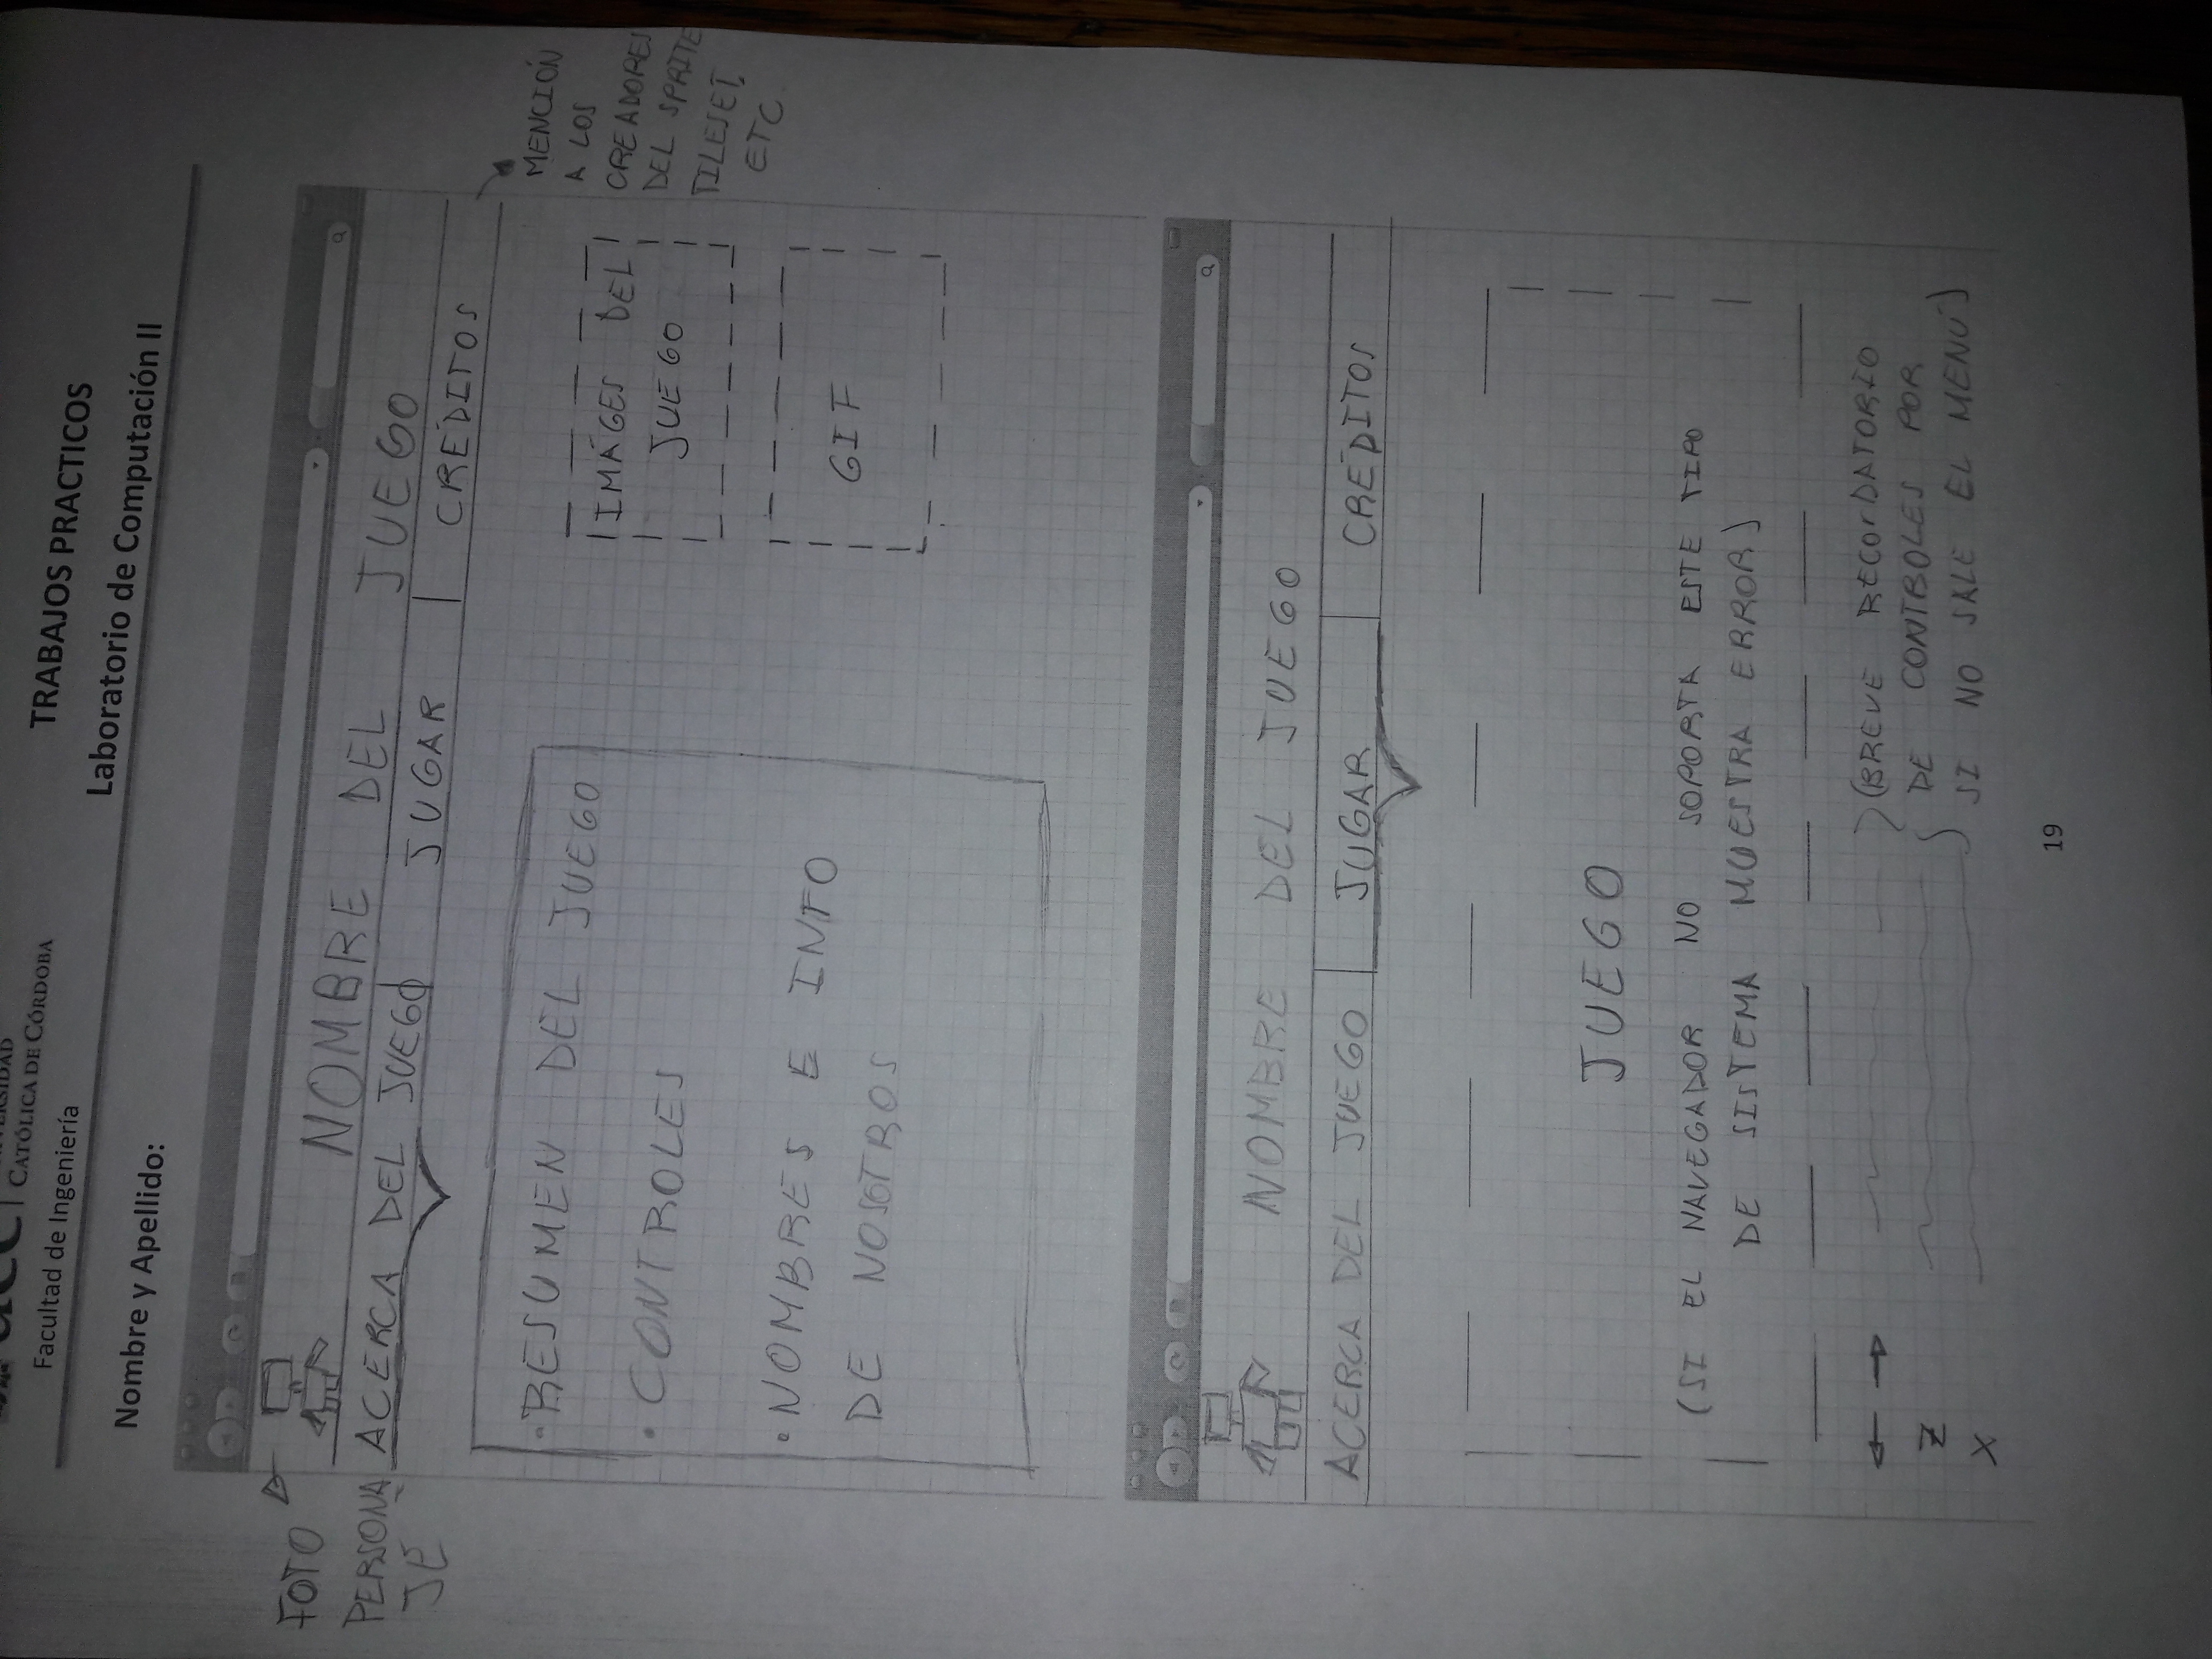 CATÓLICA DE CÓRDOBA
Facultad de Ingeniería
TRABAJOS PRACTICOS
Laboratorio de Computación II
Nombre y Apellido:
FOTO
PERSONA
JE
NOMBRE DEL JUEGO
ACERCA DEL JUEGO JUGAR CRÉDITOS
MENCIÓN
A LOS
CREADORES
DEL SPRITE
TILESET,
ETC
• RESUMEN DEL JUEGO
• CONTROLES
• NOMBRES E INFO
DE NOSOTROS
IMÁGES DEL
JUEGO
GIF
NOMBRE DEL JUEGO
ACERCA DEL JUEGO JUGAR CRÉDITOS
JUEGO
(SI EL NAVEGADOR NO SOPORTA ESTE TIPO
DE SISTEMA MUESTRA ERROR)
← → (BREVE RECORDATORIO
Z DE CONTROLES POR
X SI NO SALE EL MENÚ)
19